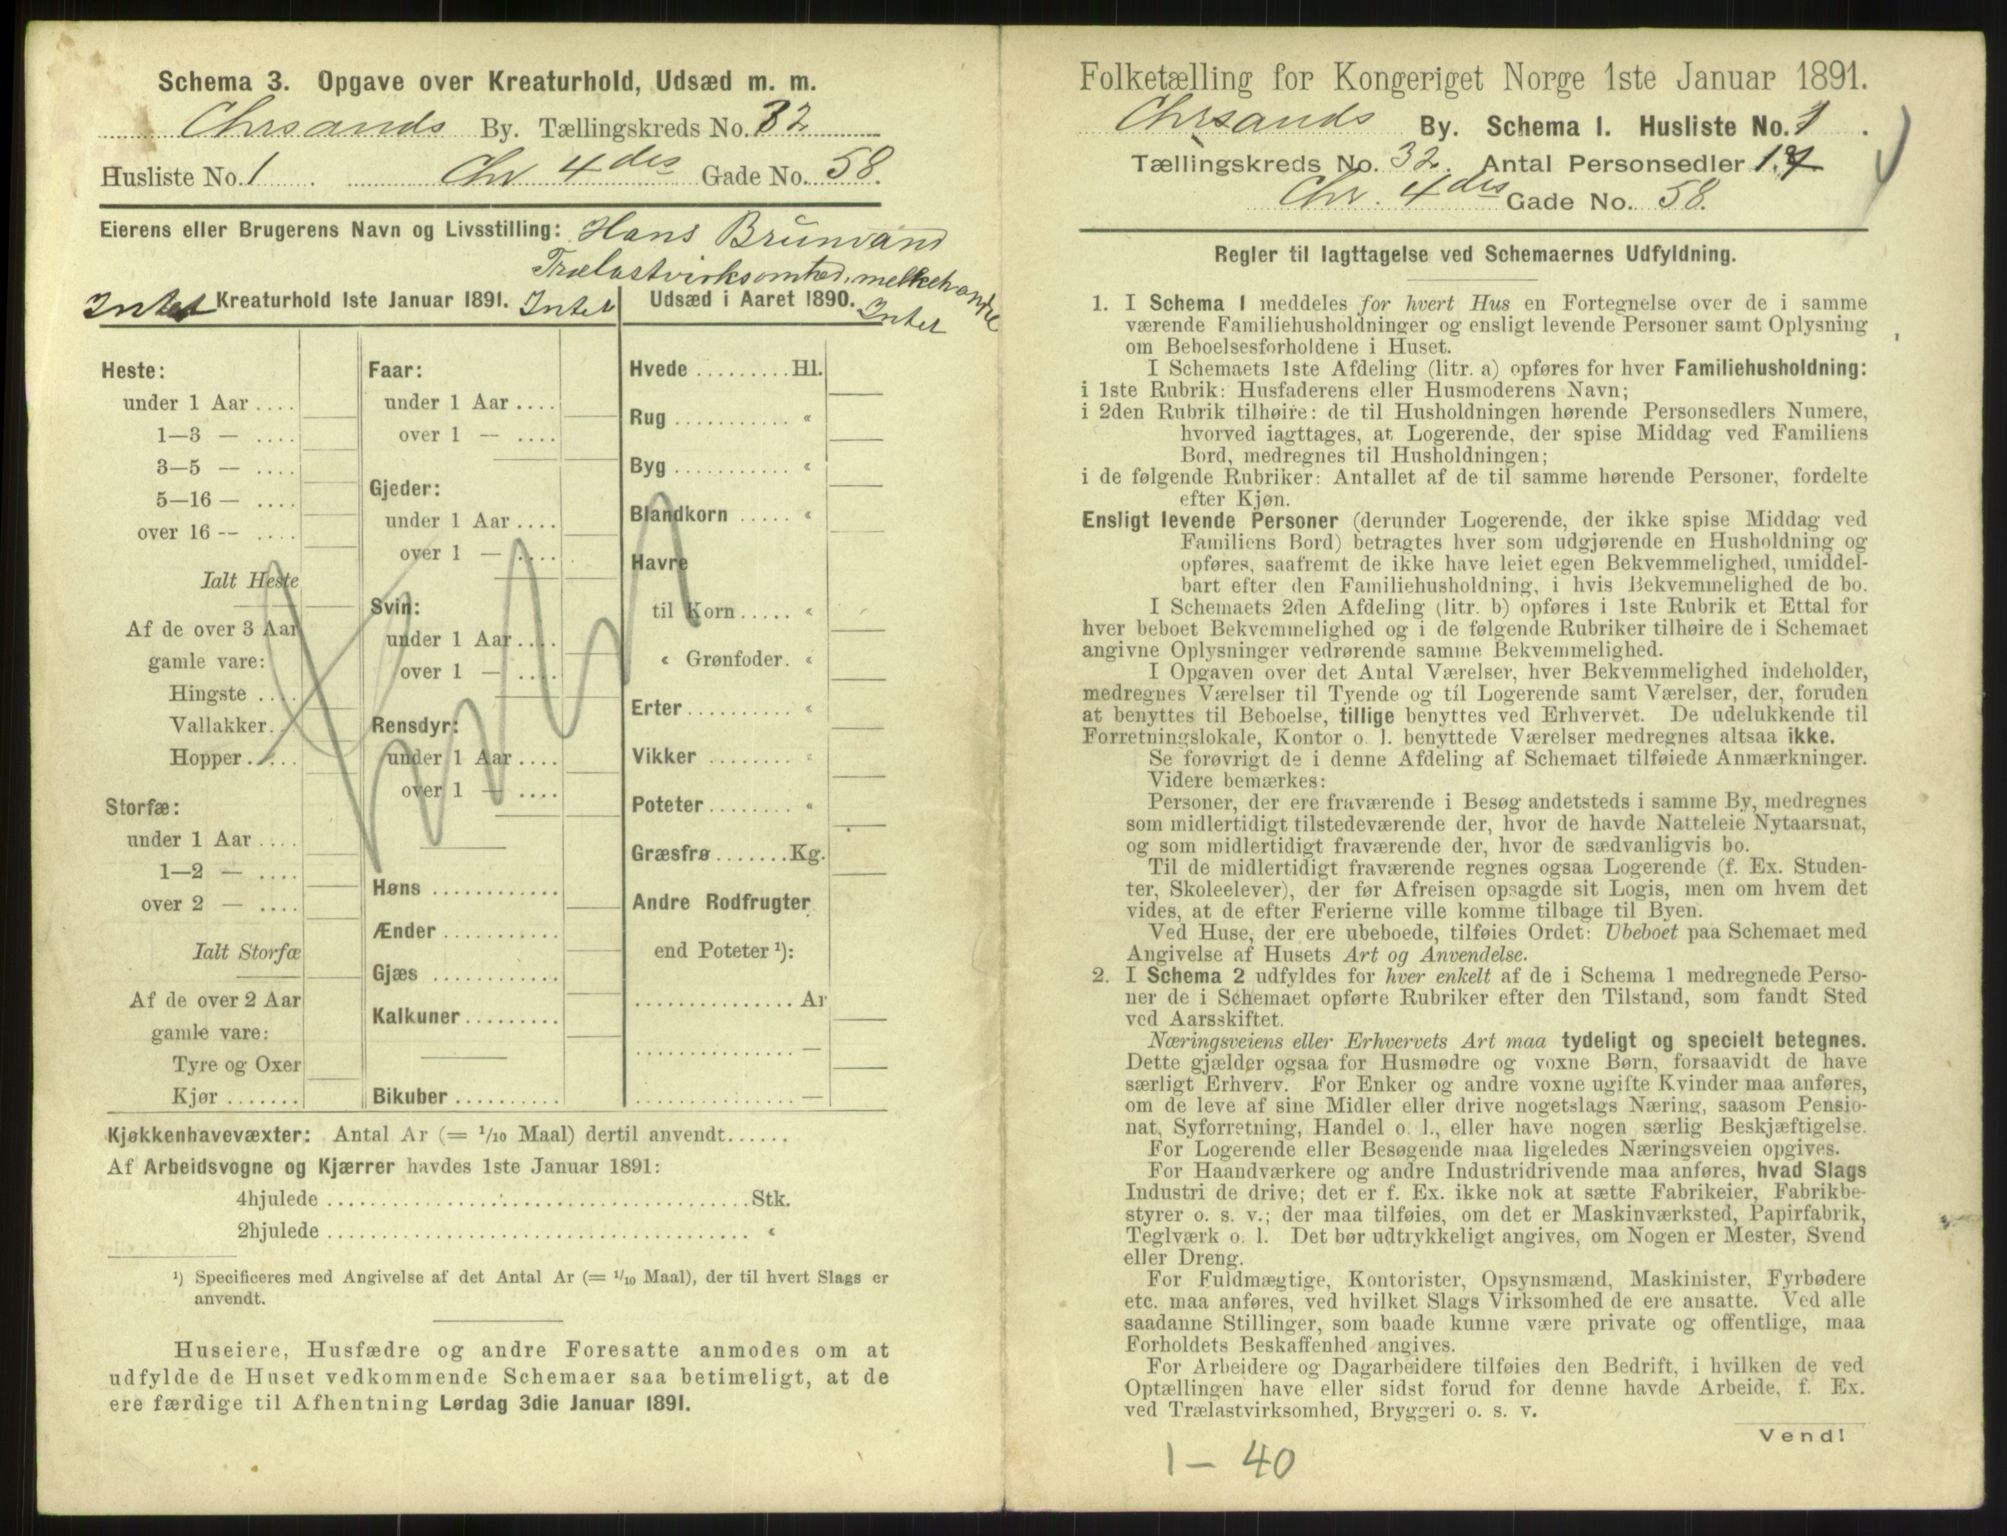 Schema 3. Opgave over Kreaturhold, Udsæd m. m.
Chrsands By. Tællingskreds No. 32
Husliste No. 1 Chr 4des Gade No. 58.
Eierens eller Brugerens Navn og Livsstilling: Hans Brunvand
Trælastvirksomhed, melkehandle
Intet Kreaturhold 1ste Januar 1891. Intet
Udsæd i Aaret 1890. Intet
Heste:
under 1 Aar ....
1—3 — ....
3—5 — ....
5—16 — ....
over 16 — ....
Ialt Heste
Af de over 3 Aar
gamle vare:
Hingste ....
Vallakker.
Hopper.....
Storfæ:
under 1 Aar ....
1—2 — ....
over 2 — ....
Ialt Storfæ
Af de over 2 Aar
gamle vare:
Tyre og Oxer
Kjør .......
Faar:
under 1 Aar ....
over 1 — ....
Gjeder:
under 1 Aar ....
over 1 — ....
Svin:
under 1 Aar ....
over 1 — ....
Rensdyr:
under 1 Aar ....
over 1 — ....
Høns ............
Ænder ...........
Gjæs ............
Kalkuner.........
Bikuber ..........
Hvede .........Hl.
Rug ........... «
Byg ........... «
Blandkorn ..... «
Havre
til Korn ..... «
« Grønfoder. «
Erter .......... «
Vikker ......... «
Poteter ........ «
Græsfrø .......Kg.
Andre Rodfrugter
end Poteter ¹):
............... Ar
............... —
............... —
Kjøkkenhavevæxter: Antal Ar (= 1/10 Maal) dertil anvendt......
Af Arbeidsvogne og Kjærrer havdes 1ste Januar 1891:
4hjulede ........................................Stk.
2hjulede ........................................ «
¹) Specificeres med Angivelse af det Antal Ar (= 1/10 Maal), der til hvert Slags er
anvendt.
Huseiere, Husfædre og andre Foresatte anmodes om at
udfylde de Huset vedkommende Schemaer saa betimeligt, at de
ere færdige til Afhentning Lørdag 3die Januar 1891.
Folketælling for Kongeriget Norge 1ste Januar 1891.
Chrsands By. Schema I. Husliste No. 1.
Tællingskreds No. 32. Antal Personsedler
Chr. 4des Gade No. 58.
Regler til Iagttagelse ved Schemaernes Udfyldning.
1. I Schema 1 meddeles for hvert Hus en Fortegnelse over de i samme
værende Familiehusholdninger og ensligt levende Personer samt Oplysning
om Beboelsesforholdene i Huset.
I Schemaets 1ste Afdeling (litr. a) opføres for hver Familiehusholdning:
i 1ste Rubrik: Husfaderens eller Husmoderens Navn;
i 2den Rubrik tilhøire: de til Husholdningen hørende Personsedlers Numere,
hvorved iagttages, at Logerende, der spise Middag ved Familiens
Bord, medregnes til Husholdningen;
i de følgende Rubriker: Antallet af de til samme hørende Personer, fordelte
efter Kjøn.
Ensligt levende Personer (derunder Logerende, der ikke spise Middag ved
Familiens Bord) betragtes hver som udgjørende en Husholdning og
opføres, saafremt de ikke have leiet egen Bekvemmelighed, umiddel-
bart efter den Familiehusholdning, i hvis Bekvemmelighed de bo.
I Schemaets 2den Afdeling (litr. b) opføres i 1ste Rubrik et Ettal for
hver beboet Bekvemmelighed og i de følgende Rubriker tilhøire de i Schemaet
angivne Oplysninger vedrørende samme Bekvemmelighed.
I Opgaven over det Antal Værelser, hver Bekvemmelighed indeholder,
medregnes Værelser til Tyende og til Logerende samt Værelser, der, foruden
at benyttes til Beboelse, tillige benyttes ved Erhvervet. De udelukkende til
Forretningslokale, Kontor o. l. benyttede Værelser medregnes altsaa ikke.
Se forøvrigt de i denne Afdeling af Schemaet tilføiede Anmærkninger.
Videre bemærkes:
Personer, der ere fraværende i Besøg andetsteds i samme By, medregnes
som midlertidigt tilstedeværende der, hvor de havde Natteleie Nytaarsnat,
og som midlertidigt fraværende der, hvor de sædvanligvis bo.
Til de midlertidigt fraværende regnes ogsaa Logerende (f. Ex. Studen-
ter, Skoleelever), der før Afreisen opsagde sit Logis, men om hvem det
vides, at de efter Ferierne ville komme tilbage til Byen.
Ved Huse, der ere ubeboede, tilføies Ordet: Ubeboet paa Schemaet med
Angivelse af Husets Art og Anvendelse.
2. I Schema 2 udfyldes for hver enkelt af de i Schema 1 medregnede Perso-
ner de i Schemaet opførte Rubriker efter den Tilstand, som fandt Sted
ved Aarsskiftet.
Næringsveiens eller Erhvervets Art maa tydeligt og specielt betegnes.
Dette gjælder ogsaa for Husmødre og voxne Børn, forsaavidt de have
særligt Erhverv. For Enker og andre voxne ugifte Kvinder maa anføres,
om de leve af sine Midler eller drive nogetslags Næring, saasom Pensio-
nat, Syforretning, Handel o. l., eller have nogen særlig Beskjæftigelse.
For Logerende eller Besøgende maa ligeledes Næringsveien opgives.
For Haandværkere og andre Industridrivende maa anføres, hvad Slags
Industri de drive; det er f. Ex. ikke nok at sætte Fabrikeier, Fabrikbe-
styrer o. s. v.; der maa tilføies, om det er Maskinværksted, Papirfabrik,
Teglværk o. l. Det bør udtrykkeligt angives, om Nogen er Mester, Svend
eller Dreng.
For Fuldmægtige, Kontorister, Opsynsmænd, Maskinister, Fyrbødere
etc. maa anføres, ved hvilket Slags Virksomhed de ere ansatte. Ved alle
saadanne Stillinger, som baade kunne være private og offentlige, maa
Forholdets Beskaffenhed angives.
For Arbeidere og Dagarbeidere tilføies den Bedrift, i hvilken de ved
Optællingen have eller sidst forud for denne havde Arbeide, f. Ex.
ved Trælastvirksomhed, Bryggeri o. s. v.
Vend!
1 - 40